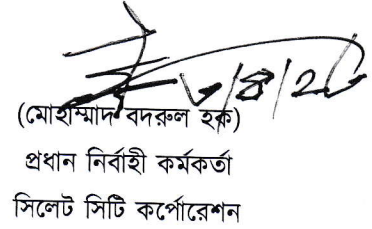 (মোহাম্মাদ বদরুল হক)
প্রধান নির্বাহী কর্মকর্তা
সিলেট সিটি কর্পোরেশন